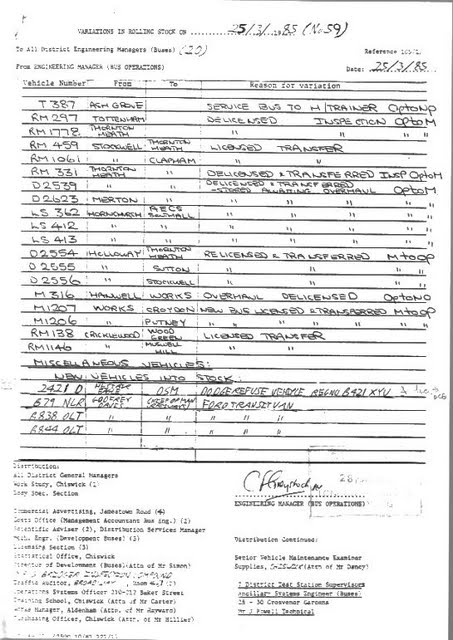 VARIATIONS IN ROLLING STOCK ON 25/3/1985 (No 59)
To All District Engineering Managers (Buses) (20) Reference
From ENGINEERING MANAGER (BUS OPERATIONS) Date: 25/3/85.
Vehicle Number From To Reason for variation
T387 ASH GROVE SERVICE BUS TO H/TRAINER OptoNp
RM 297 TOTTENHAM DELICENSED INSPECTION OptoM
RM 1778 THORNTON HEATH " " "
RM 459 STOCKWELL THORNTON HEATH LICENSED TRANSFER
RM 1061 " CLAPHAM " "
RM 331 THORNTON HEATH DELICENSED & TRANSFERRED INSP OptoM
D2539 " DELICENSED & TRANSFERRED -STORED AWAITING OVERHAUL OptoM
D2623 MERTON " " " "
LS 362 HORNCHURCH AECS SOUTHALL " " " "
LS 412 " " " " " "
LS 413 " " " " " "
D2554 HOLLOWAY THORNTON HEATH RELICENSED & TRANSFERRED MtoOP
D2555 " SUTTON " " "
D2556 " STOCKWELL " " "
M316 HANWELL WORKS OVERHAUL DELICENSED OptoNO
M1207 WORKS CROYDON NEW BUS LICENSED & TRANSFERRED MtoOP
M1206 " PUTNEY " " " " "
RM138 CRICKLEWOOD WOOD GREEN LICENSED TRANSFER
RM1146 " MUSWELL HILL " "
MISCELLANEOUS VEHICLES:
NEW VEHICLES INTO STOCK:
2421 D DSM DODGE REFUSE VEHICLE REGNO B421 XYU
B79 NLR GODFREY DAVIS FORD TRANSIT VAN
B838 OLT " " " " "
B844 OLT " " " " "
Distribution:
All District General Managers
Work Study, Chiswick (1)
Section
ENGINEERING MANAGER (BUS OPERATIONS)
Commercial Advertising, Jamestown Road (4)
Costs Office (Management Accountant Bus Eng.) (2)
Scientific Adviser (2), Distribution Services Manager
Engr. (Development Buses) (3)
Licensing Section (3)
Statistical Office, Chiswick
Director of Development (Buses) (Attn of Mr Simon)
Traffic Auditor, BROADWAY
Operations Systems Officer Baker Street
Training School, Chiswick (Attn of Mr Carter)
Works Manager, Aldenham (Attn of Mr Hayward)
Purchasing Officer, Chiswick (Attn of Mr Hillier)
Distribution Continued:
Senior Vehicle Maintenance Examiner
Supplies, CHISWICK (Attn of Mr Dancy)
7 District Test Station Supervisors
Ancillary Systems Engineer (Buses)
28 - 30 Grosvenor Gardens
Mr J Powell Technical